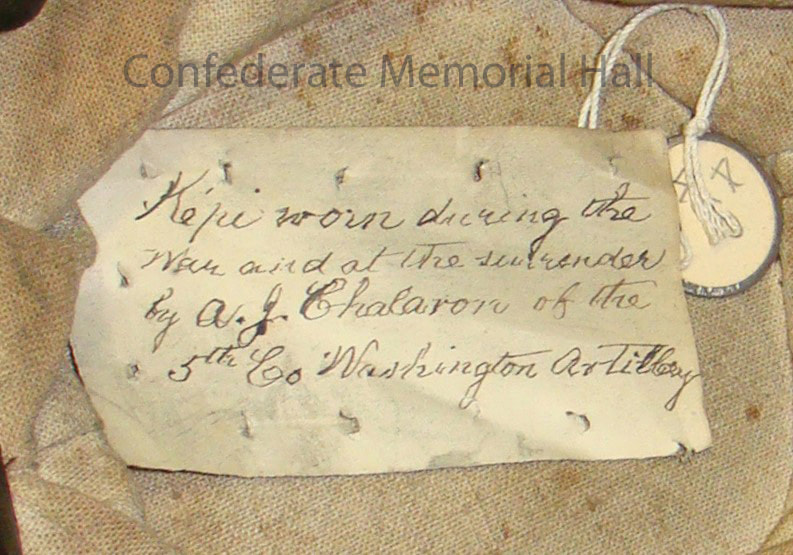 Confederate Memorial Hall
Képi worn during the
War and at the surrender
by A. J. Chalaron of the
5th Co Washington Artillery